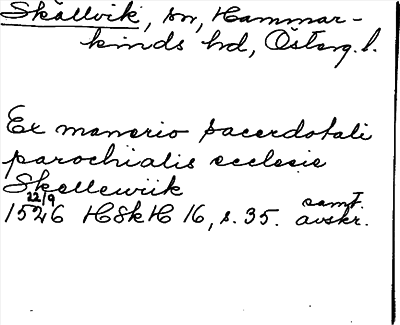 Skällvik, sn, Hammar-
kinds hd, Österg. l.
Ex manerio sacerdotali
parochialis ecclesie
Skellewiik
22/9
1526 HSkH 16, s. 35. samt. avskr.